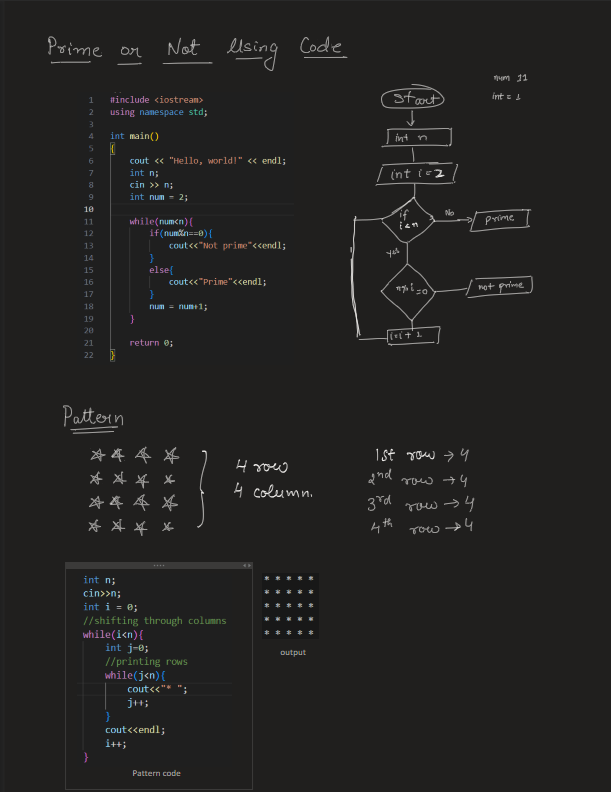 Prime or Not Using Code
num 11
int = 1
1 #include <iostream>
2 using namespace std;
3
4 int main()
5 {
6 cout << "Hello, world!" << endl;
7 int n;
8 cin >> n;
9 int num = 2;
10
11 while(num<n){
12 if(num%n==0){
13 cout<<"Not prime"<<endl;
14 }
15 else{
16 cout<<"Prime"<<endl;
17 }
18 num = num+1;
19 }
20
21 return 0;
22 }
start
int n
int i=2
if
i<n
No
prime
yes
n%i=0
not prime
i=i+1
Pattern
4 row
4 column.
1st row → 4
2nd row → 4
3rd row → 4
4th row → 4
int n;
cin>>n;
int i = 0;
//shifting through columns
while(i<n){
int j=0;
//printing rows
while(j<n){
cout<<"* ";
j++;
}
cout<<endl;
i++;
}
Pattern code
* * * * *
* * * * *
* * * * *
* * * * *
* * * * *
output